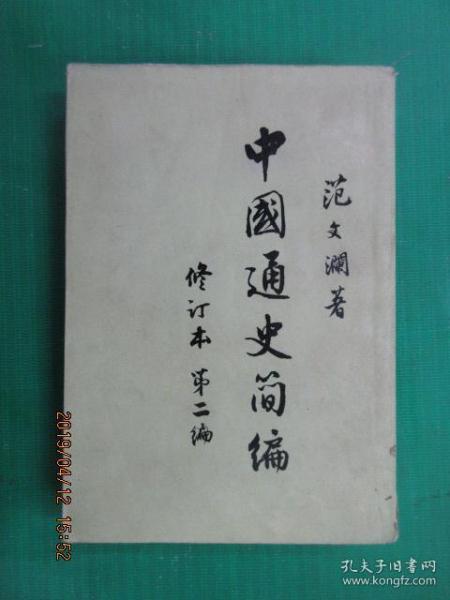 范文瀾著
中國通史简编
修订本 第二编
2019/04/12 15:52
孔夫子旧书网
www.kongfz.com